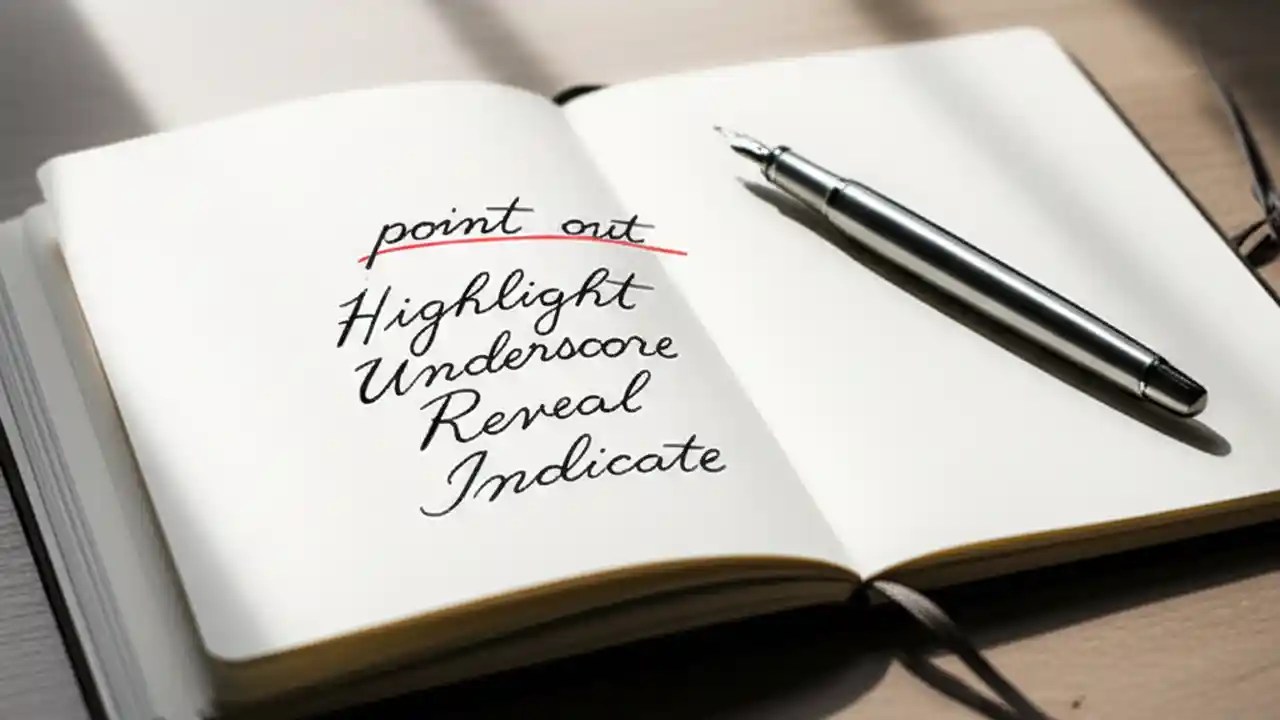 point out
Highlight
Underscore
Reveal
Indicate